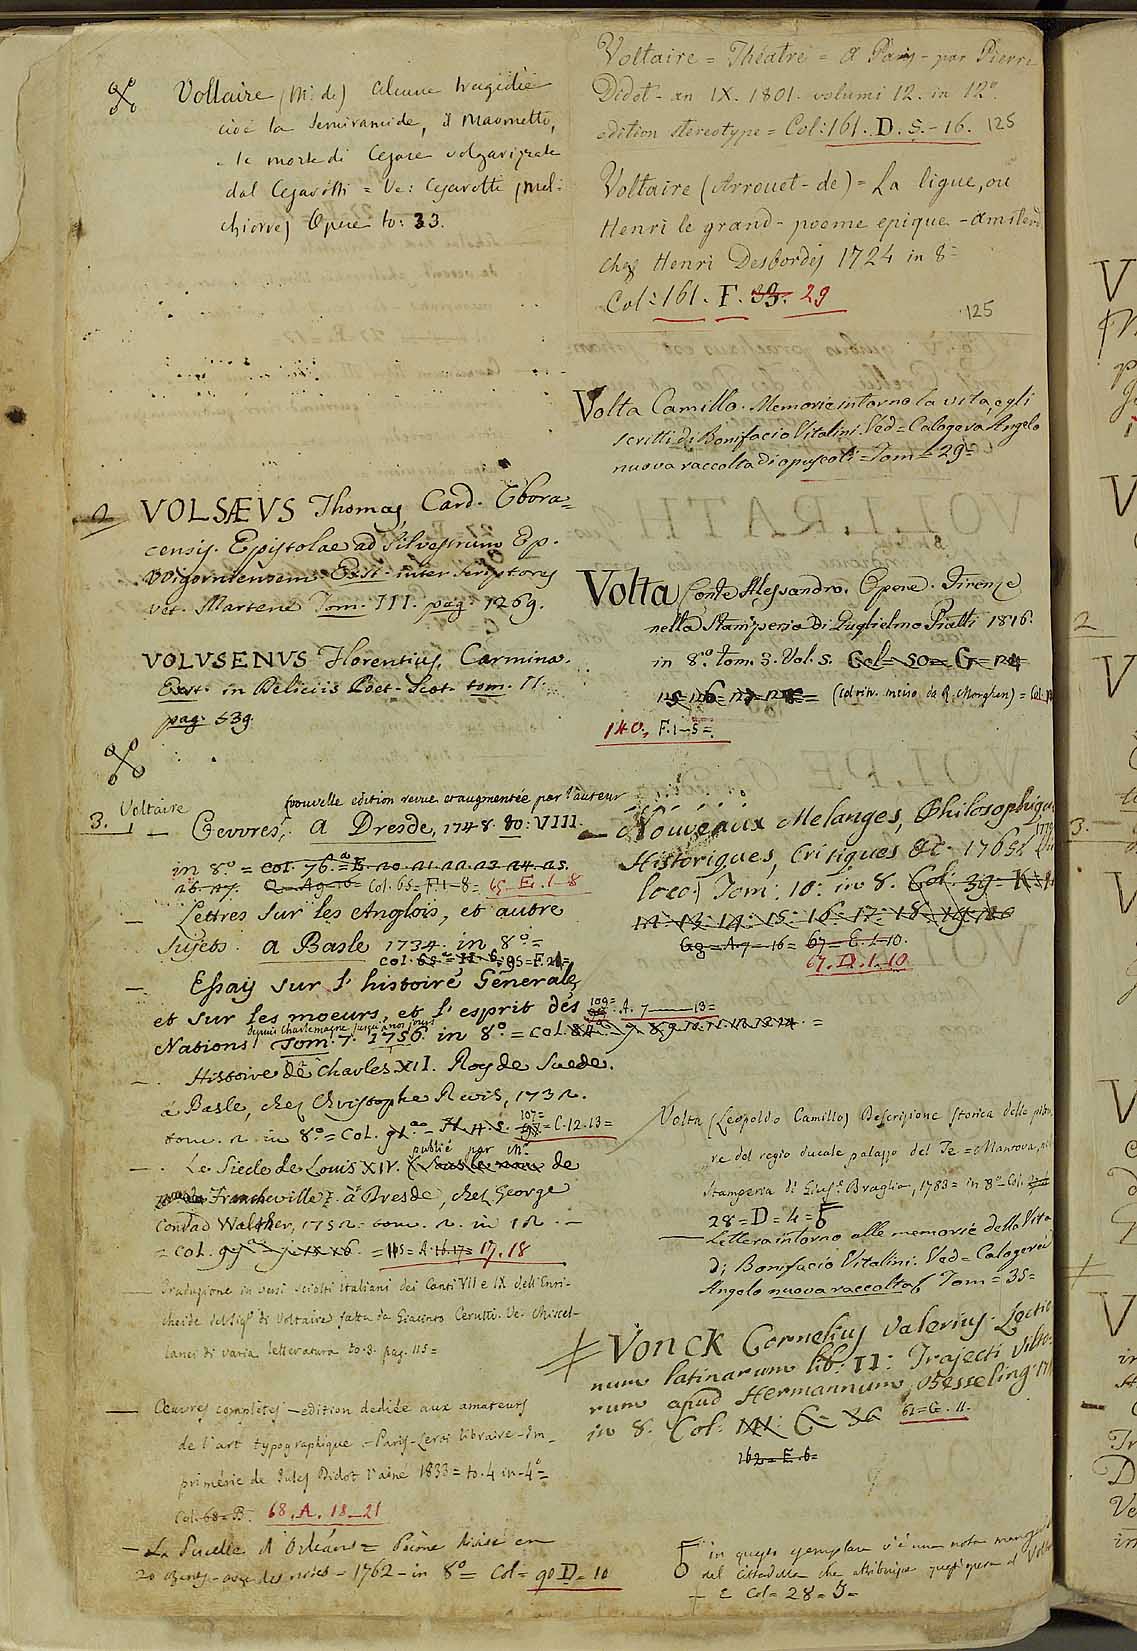 Voltaire (Mr. de) alcune tragedie
cioè la Semiramide, il Maometto,
la morte di Cesare volgarizzate
dal Cesarotti = Ve: Cesarotti (Mel-
chiorre) Opere to: 33.
2 VOLSÆVS Thomas, Card. Ebora=
censis. Epistolae ad Silvestrum Ep.
Wigorniensem Exst. inter Scriptores
vet. Martene Tom. III. pag. 1269.
VOLVSENVS Florentius, Carmina.
Exst. in Deliciis Poet. Scot. tom. II.
pag. 539.
3. Voltaire (nouvelle edition revue et augmentée par l'auteur
— Oevvres, A Dresde, 1748. 80: VIII.
in 8.° = Col. 76. E. 20. 21. 22. 23. 24. 25.
26. 27. Col. 65 = F. 1-8 = 65. E. 1-8
— Lettres sur les Anglois, et autre
Sujets. A Basle 1734. in 8.° =
Col. 95 = F. 21 =
— Essay sur l'histoire Generale,
et sur les moeurs, et l'esprit des
depuis Charlemagne jusqu'a nos jours
Nations Tom. 7. 1756. in 8.° = Col.
109 = A. 7 — 13 =
— Histoire de Charles XII. Roy de Suede.
à Basle, chez Christophe Revis, 1732.
tom. 2. in 8.° = Col. 107 = C. 12. 13 =
publié par Mr.
— Le Siecle de Louis XIV. de
Francheville à Dresde, chez George
Conrad Walther, 1752. tom. 2. in 12. —
= Col. = 115 = A. 16. 17 = 17, 18
— Traduzione in versi sciolti italiani dei Canti VII e IX dell'Enri-
cheide del Sigr. di Voltaire fatta da Giacinto Cerutti. Ve. Miscel-
lanei di varia letteratura to. 8. pag. 115 =
— Œuvres complètes — edition dediée aux amateurs
de l'art typographique - Paris - Leroi libraire - Im-
primérie de Jules Didot l'ainé 1833 = to. 4 in-4.° =
Col. 68 = B. 68. A. 18-21
— La Pucelle d'Orléans = Poème divisé en
20 chants - avec des notes - 1762 - in 8.° = Col = 90 D = 10
Voltaire = Théatre = A Paris - par Pierre
Didot - an IX. 1801. volumi 12. in 12.°
edition stereotype = Col: 161. D. 5.-16. 125
Voltaire (Arrouet - de) = La ligue, ou
Henri le grand - poeme epique - Amsterd
chez Henri Desbordes 1724 in 8 =
Col: 161. F. 33. 29
125
Volta Camillo. Memorie intorno la vita, e gli
scritti di Bonifacio Vitalini. Ved = Calogera Angelo
nuova raccolta di opuscoli = Tom = 29 =
Volta Conte Alessandro. Opere. Firenze
nella Stamperia di Guglielmo Piatti 1816.
in 8.° tom. 3. Vol. 5. Col = 50 = G = 124
125 126 = 127 = 128 = (col ritr. inciso da R. Morghen) = Col.
140, F. 1-5 =
— Nouveaux Melanges, Philosophiqu
Historiques, Critiques &c. 1765
loco) Tom: 10: in 8. Col: 39 = K
11: 13: 14: 15: 16: 17: 18: 19: 20
69 = A. 7 — 16 = 67 = E. 1-10.
67. D. 1. 10
Volta (Leopoldo Camillo) Descrizione storica delle pittu
re del regio ducale palazzo del Te = Mantova, per
Stamperia di Gius. Braglia, 1783 = in 8.° Col.
28 = D = 4 =
— Lettera intorno alle memorie della Vita
di Bonifacio Vitalini. Ved = Calogerà
Angelo nuova raccolta & Tom = 35 =
VONCK Cornelius Valerius. Lectio
num latinarum lib: II: Trajecti Viltor
rum apud Hermannum Vesseling
in 8. Col: C 36 61 = G. 11.
162 = E. 6 =
in questo esemplare v'è una nota
del Cittadella che attribuisce quest'opera al Volta
E Col = 28 = J =